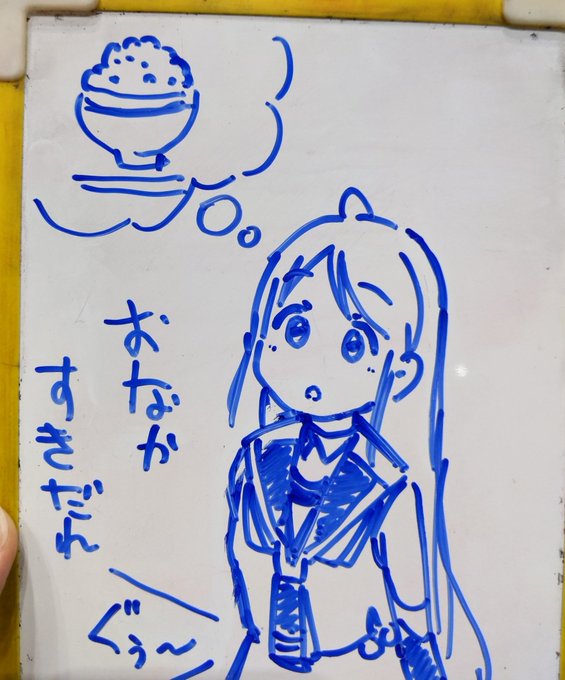 おなか
すきだれ
ぐぅ〜